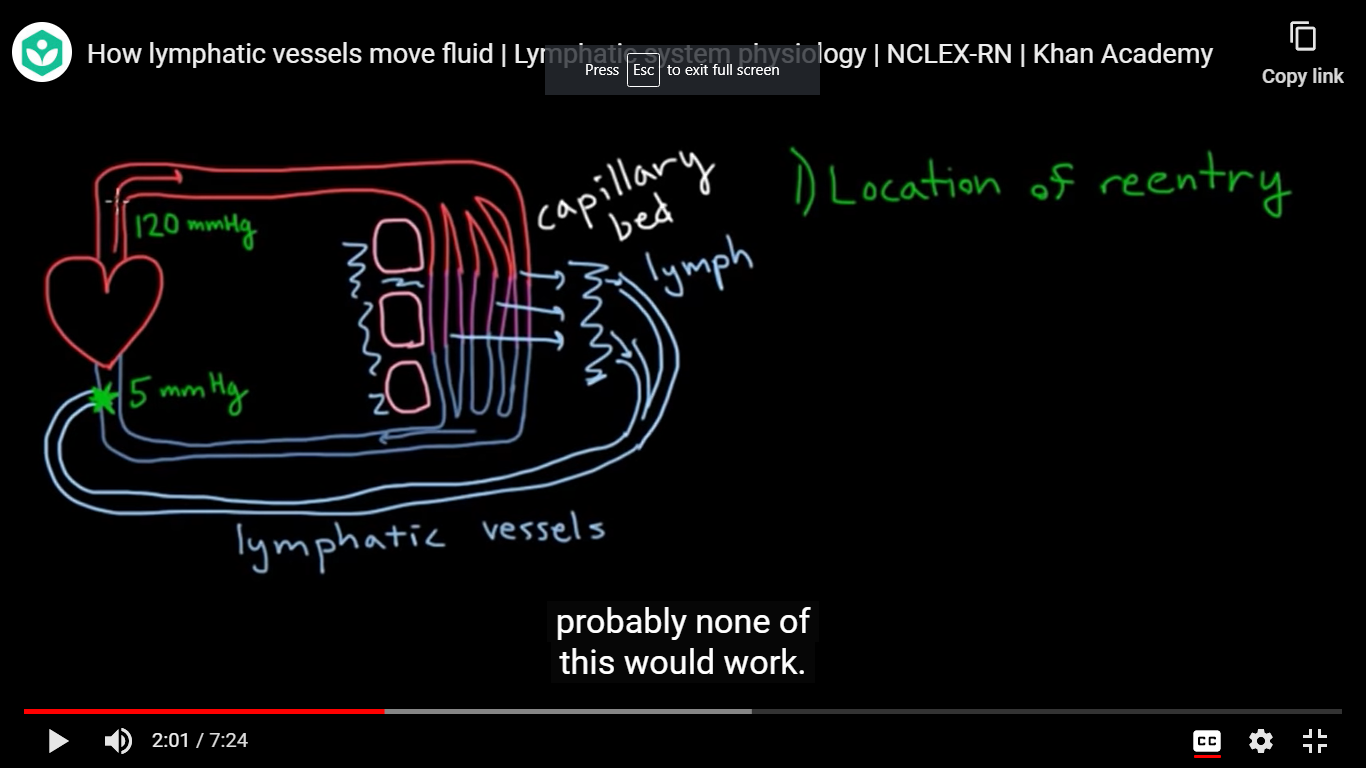 How lymphatic vessels move fluid | Lymphatic system physiology | NCLEX-RN | Khan Academy
Press Esc to exit full screen
Copy link
1) Location of reentry
capillary
bed
120 mmHg
lymph
5 mmHg
lymphatic vessels
probably none of
this would work.
2:01 / 7:24
CC